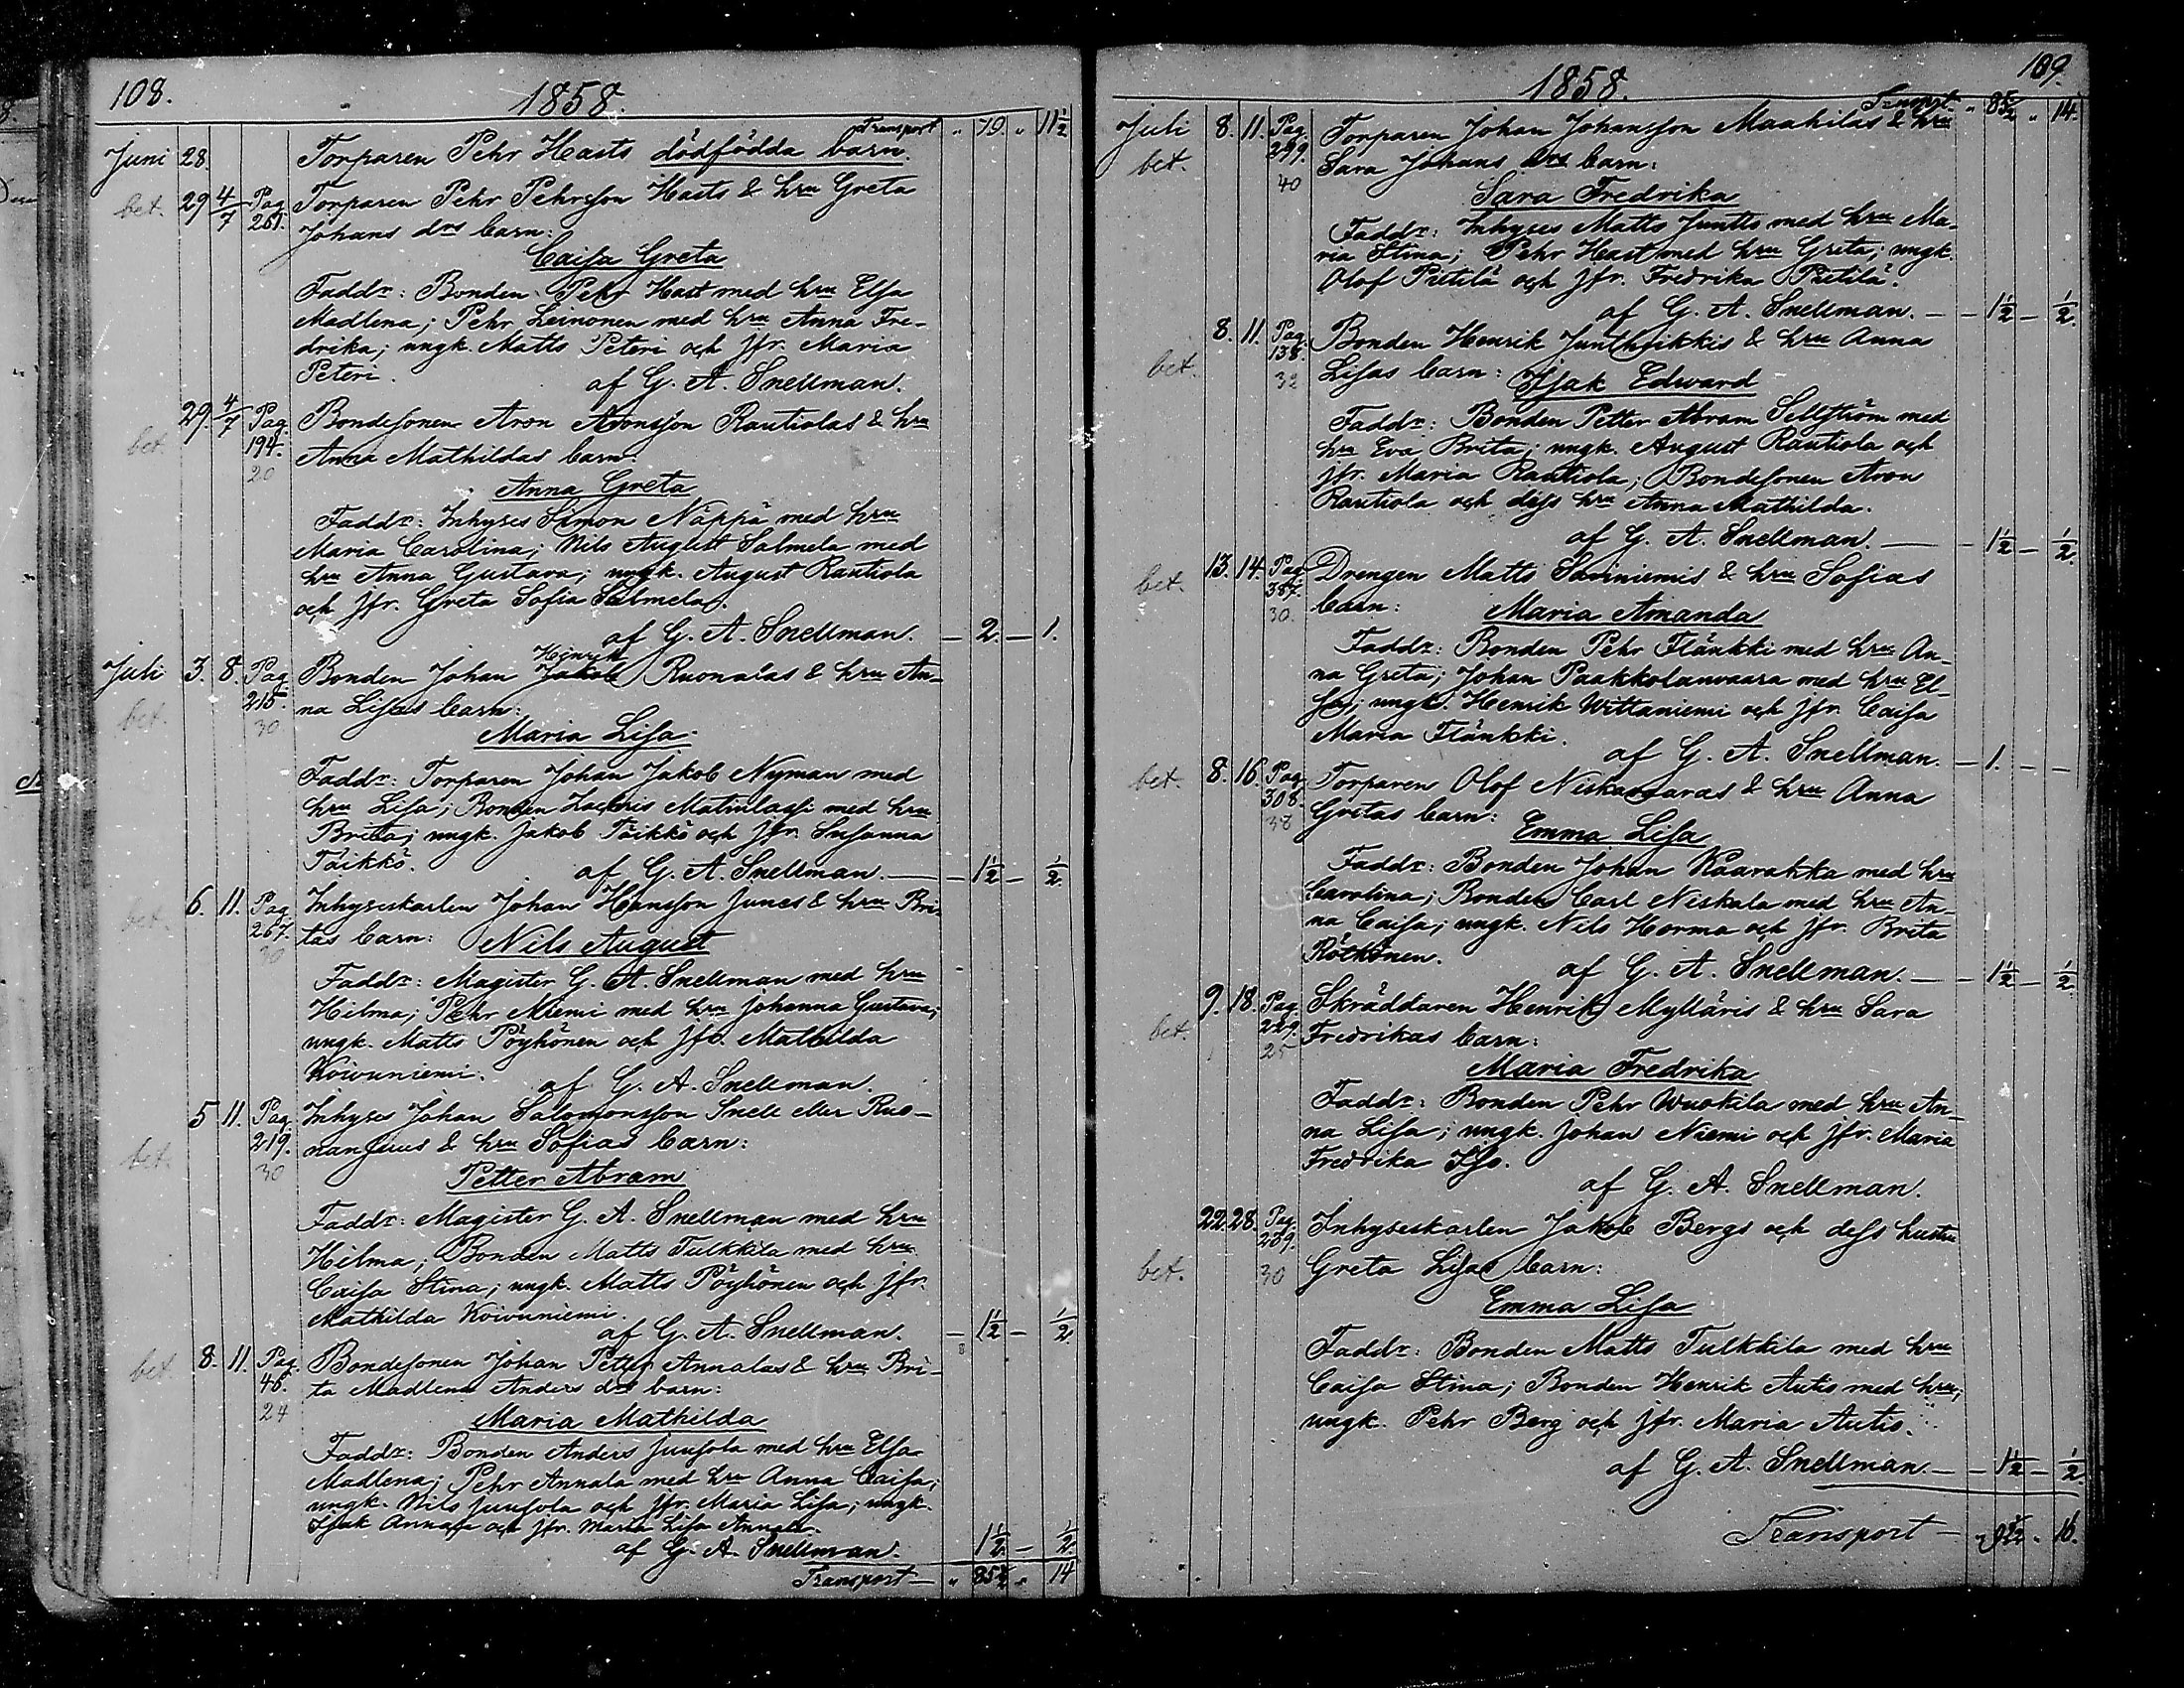 108.
1858.
Transport " 79. " 11½
Juni 28. Torparen Pehr Hasts dödfödda barn.
bet. 29 4/7 Pag. 261. Torparen Pehr Pehrsson Hasts & hru Greta
Johans drs barn:
Caisa Greta
Faddr: Bonden Pehr Hast med hru Elsa
Madlena; Pehr Leinonen med hru Anna Fre-
drika; ungk. Matts Peteri och jfr. Maria
Peteri. af G. A. Snellman.
bet. 29. 4/7 Pag. 194. 20 Bondesonen Aron Aronsson Rautiolas & hru
Anna Mathildas barn:
Anna Greta
Faddr: Inhyses Simon Näppä med hru
Maria Carolina; Nils August Salmela med
hru Anna Gustava; ungk. August Rautiola
och jfr. Greta Sofia Salmela.
af G. A. Snellman. — 2. — 1.
Henrik
Juli bet. 3. 8. Pag. 215. 30 Bonden Johan Jakob Ruonalas & hru An-
na Lisas barn:
Maria Lisa
Faddr: Torparen Johan Jakob Nyman med
hru Lisa; Bonden Zachris Matinlassi med hru
Britta; ungk. Jakob Täikkö och jfr. Susanna
Täikkö. af G. A. Snellman. — — 1½ — ½
bet. 6. 11. Pag. 267. 30 Inhyseskarlen Johan Hansson Junes & hru Bri-
tas barn: Nils August
Faddr: Magister G. A. Snellman med hru
Hilma; Pehr Niemi med hru Johanna Gustava;
ungk. Matts Pöyhönen och jfr. Mathilda
Koivuniemi. af G. A. Snellman.
bet. 5 11. Pag. 219. 30 Inhyses Johan Salomonsson Snell eller Ruo-
nan & hru Sofias barn:
Petter Abram
Faddr: Magister G. A. Snellman med hru
Hilma; Bonden Matts Tulkkila med hru
Caisa Stina; ungk. Matts Pöyhönen och jfr.
Mathilda Koivuniemi.
af G. A. Snellman. — 1½ — ½
bet. 8. 11. Pag. 46. 24 Bondesonen Johan Petter Annalas & hru Bri-
ta Madlena Anders drs barn:
Maria Mathilda
Faddr: Bonden Anders Juusola med hru Elsa
Madlena; Pehr Annala med hru Anna Caisa;
ungk. Nils Juusola och jfr. Maria Lisa; ungk.
Isak Annala och jfr. Maria Lisa Annala.
af G. A. Snellman. 1½ — ½
Transport — " 85½ " 14
109.
1858.
Transport " 85½ " 14.
Juli bet. 8. 11. Pag. 299. 40 Torparen Johan Johansson Maahilas & hru
Sara Johans drs barn:
Sara Fredrika
Faddr: Inhyses Matts Juntto med hru Ma-
ria Stina; Pehr Hast med hru Greta; ungk.
Olof Pietilä och jfr. Fredrika Pietilä.
af G. A. Snellman. — — 1½ — ½
bet. 8. 11. Pag. 138. 32 Bonden Henrik Junthuikkis & hru Anna
Lisas barn: Isak Edward
Faddr: Bonden Petter Abram Sellström med
hru Eva Brita; ungk. August Rautiola och
jfr. Maria Rautiola; Bondesonen Aron
Rautiola och dess hru Anna Mathilda.
af G. A. Snellman. — — 1½ — ½
bet. 13. 14. Pag. 387. 30. Drengen Matts Saviniemis & hru Sofias
barn: Maria Amanda
Faddr: Bonden Pehr Flänkki med hru An-
na Greta; Johan Paakkolanvaara med hru El-
sa; ungk. Henrik Wittaniemi och jfr. Caisa
Maria Flänkki.
af G. A. Snellman. — 1. — —
bet. 8. 16. Pag. 308. 38 Torparen Olof Niskavaaras & hru Anna
Gretas barn: Emma Lisa
Faddr: Bonden Johan Kaarakka med hru
Carolina; Bonden Carl Niskala med hru An-
na Caisa; ungk. Nils Horma och jfr. Brita
Rötkönen. af G. A. Snellman. — — 1½ — ½
bet. 9. 18. Pag. 229. 25 Skräddaren Henrik Mylläris & hru Sara
Fredrikas barn:
Maria Fredrika
Faddr: Bonden Pehr Wuokila med hru An-
na Lisa; ungk. Johan Niemi och jfr. Maria
Fredrika Iso.
af G. A. Snellman.
bet. 22. 28. Pag. 239. 30 Inhyseskarlen Jakob Bergs och dess hustru
Greta Lisas barn:
Emma Lisa
Faddr: Bonden Matts Tulkkila med hru
Caisa Stina; Bonden Henrik Autio med hru;
ungk. Pehr Berg och jfr. Maria Autio.
af G. A. Snellman. — — 1½ — ½
Transport — 16.